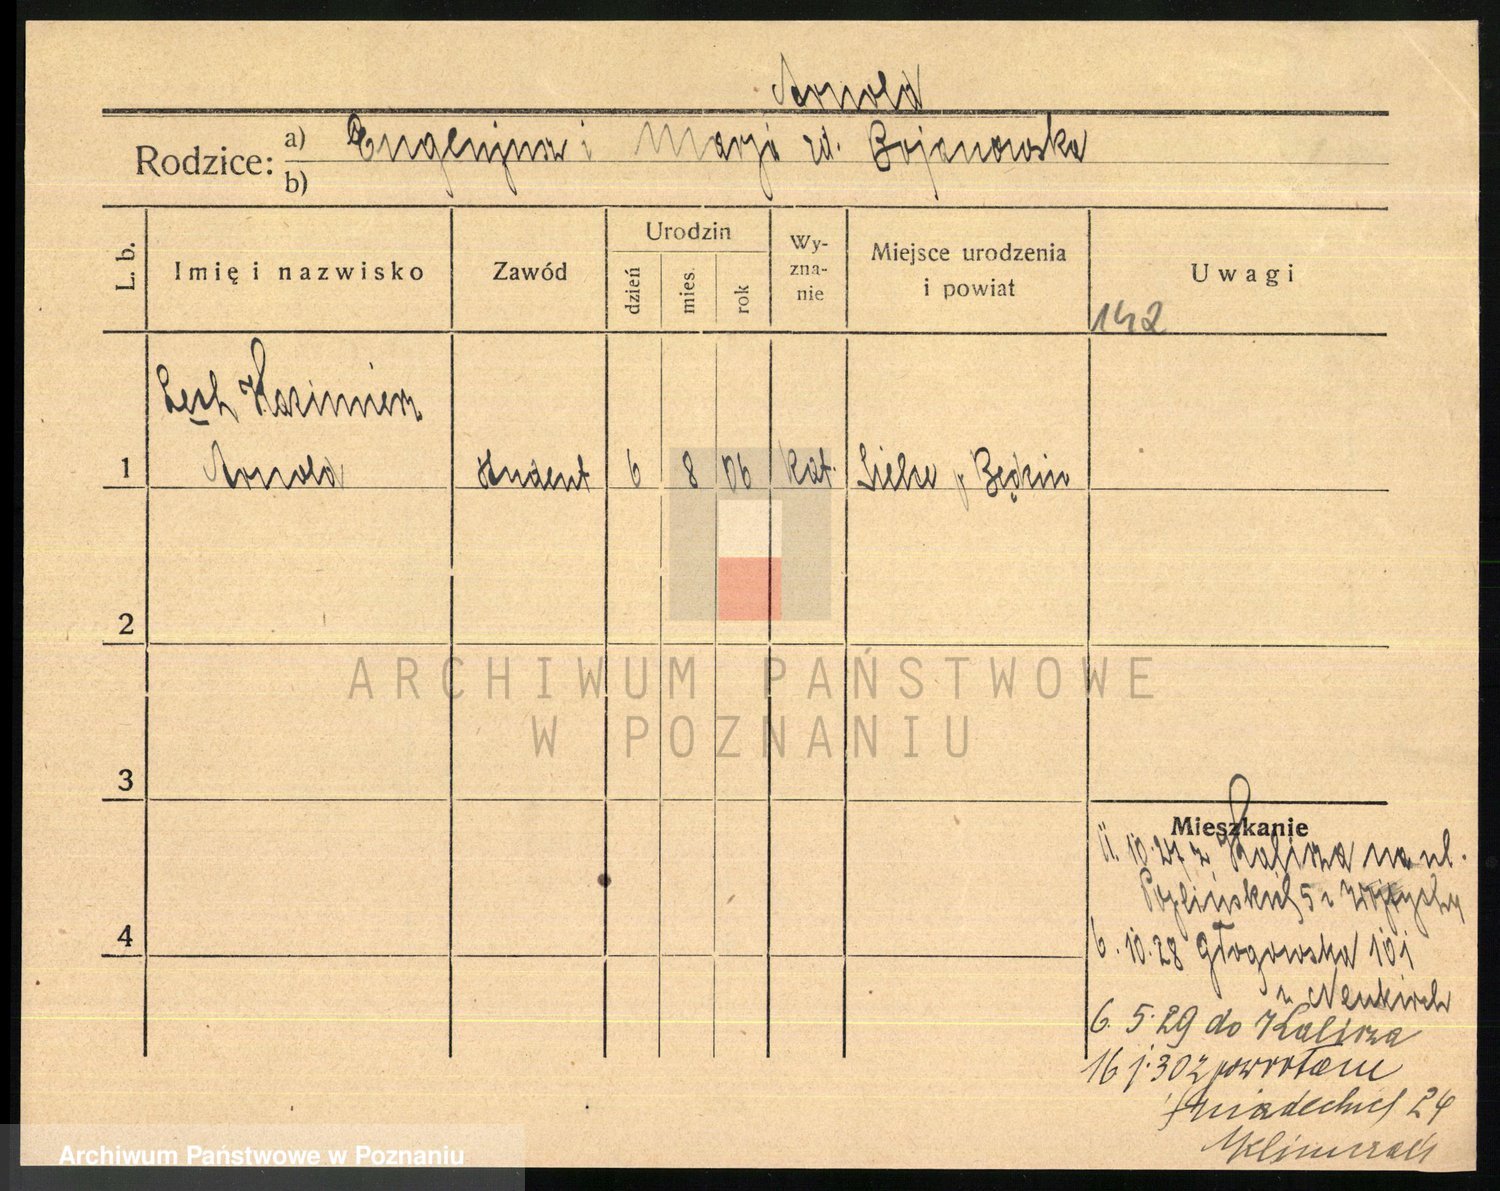 Arnold
Rodzice: a) Eugenjusz i Marja zd. Bojanowska
b)
L. b.
Imię i nazwisko
Zawód
Urodzin
dzień
mies.
rok
Wy-
zna-
nie
Miejsce urodzenia
i powiat
Uwagi
142
Lech Kazimierz
1 Arnold student 6 8 06 kat. Sielce p Będzin
2
3
4
Mieszkanie
11.10.27 z Kalisza na ul.
5 u
6.10.28 Głogowska 101
u Neukirch
6.5.29 do Kalisza
16 30 z powrotem
Śniadeckich 24
ARCHIWUM PAŃSTWOWE
W POZNANIU
Archiwum Państwowe w Poznaniu